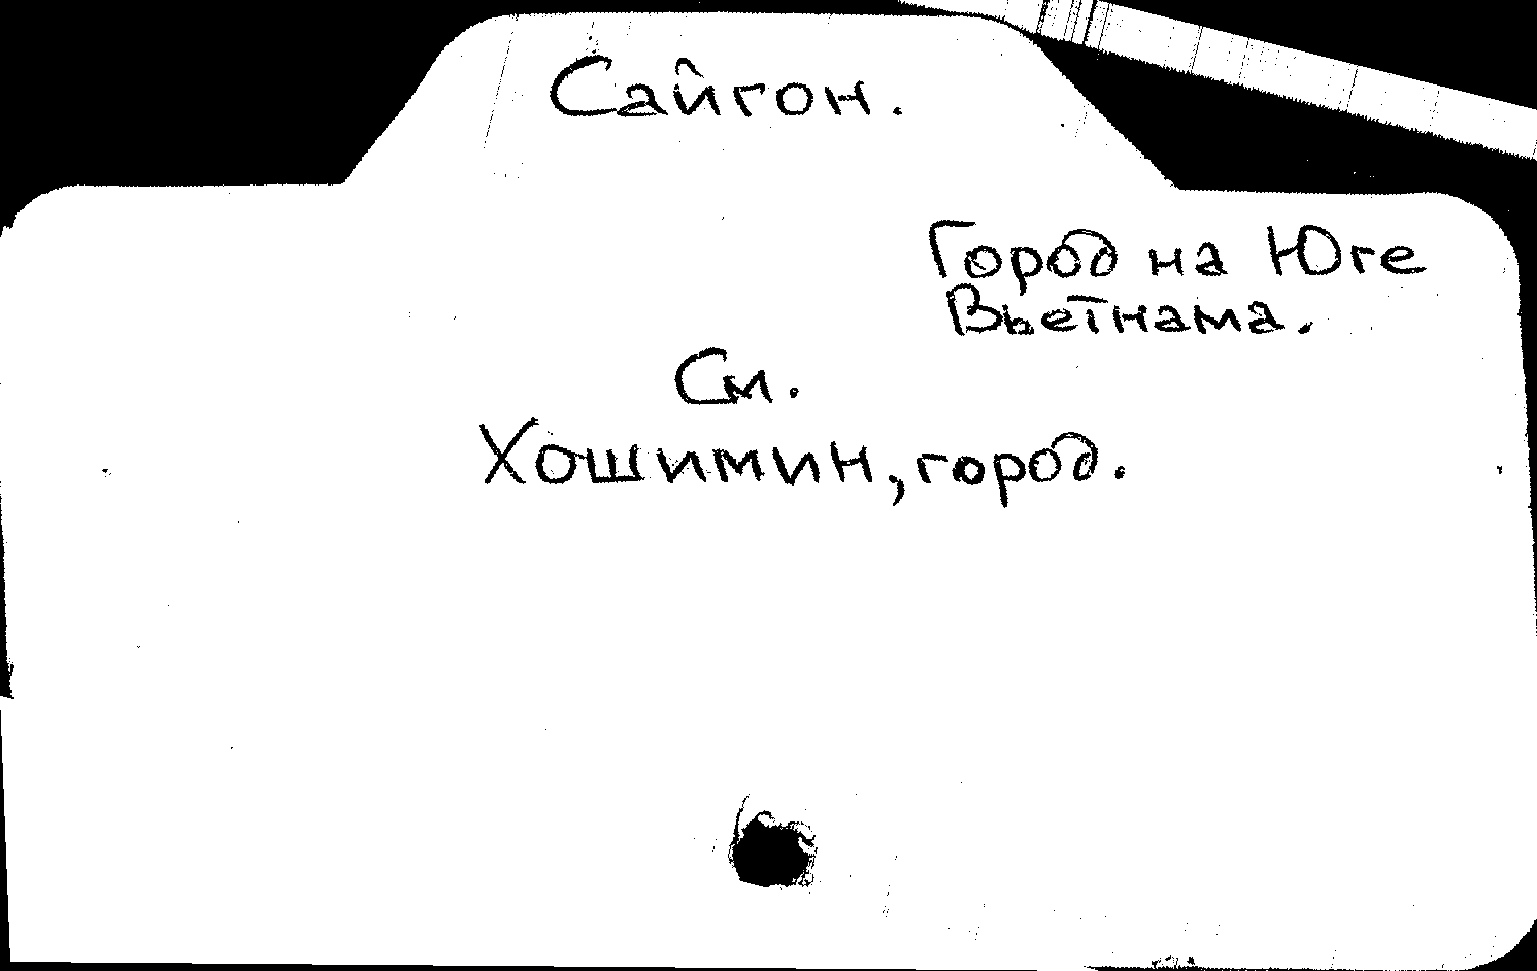 Сайгон.
Город на Юге
Вьетнама.
См.
Хошимин, город.